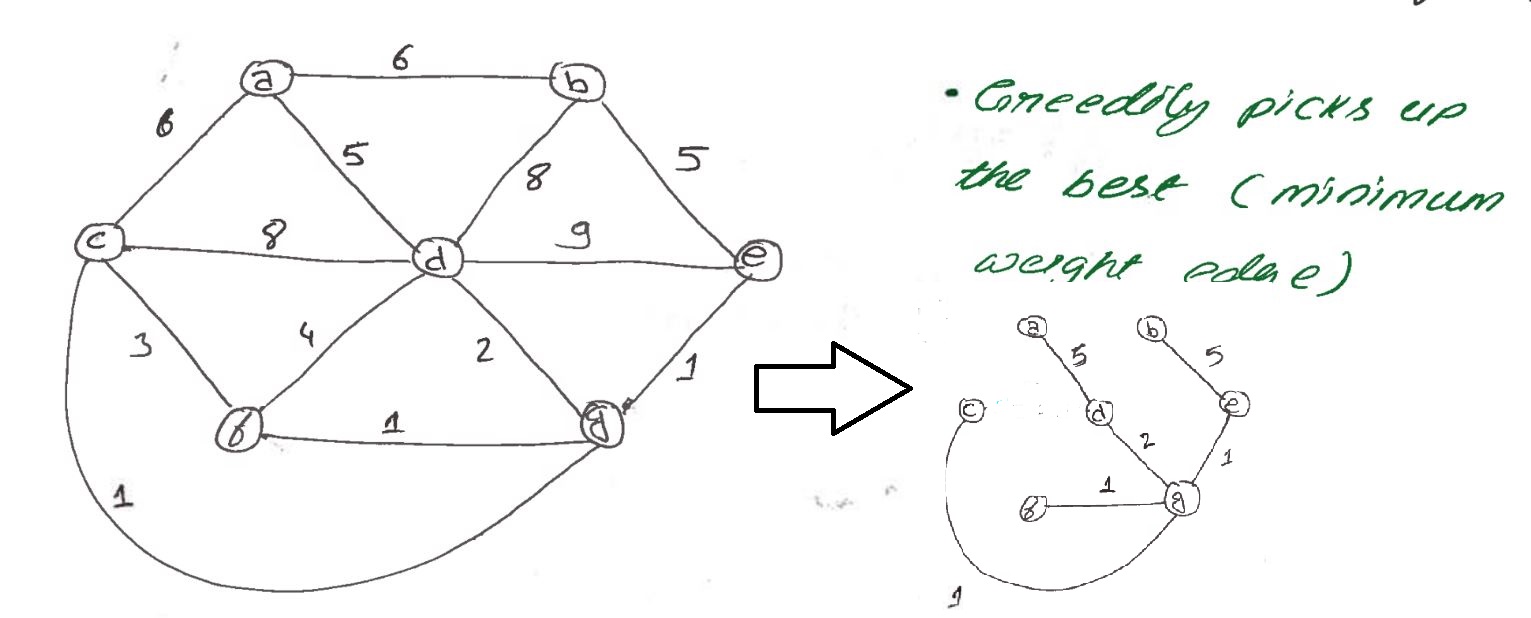 a 6 b
6 5 8 5
c 8 d 9 e
3 4 2 1
f 1 g
1
• Greedily picks up
the best (minimum
weight edge)
a b
5 5
c d e
2 1
f 1 g
1